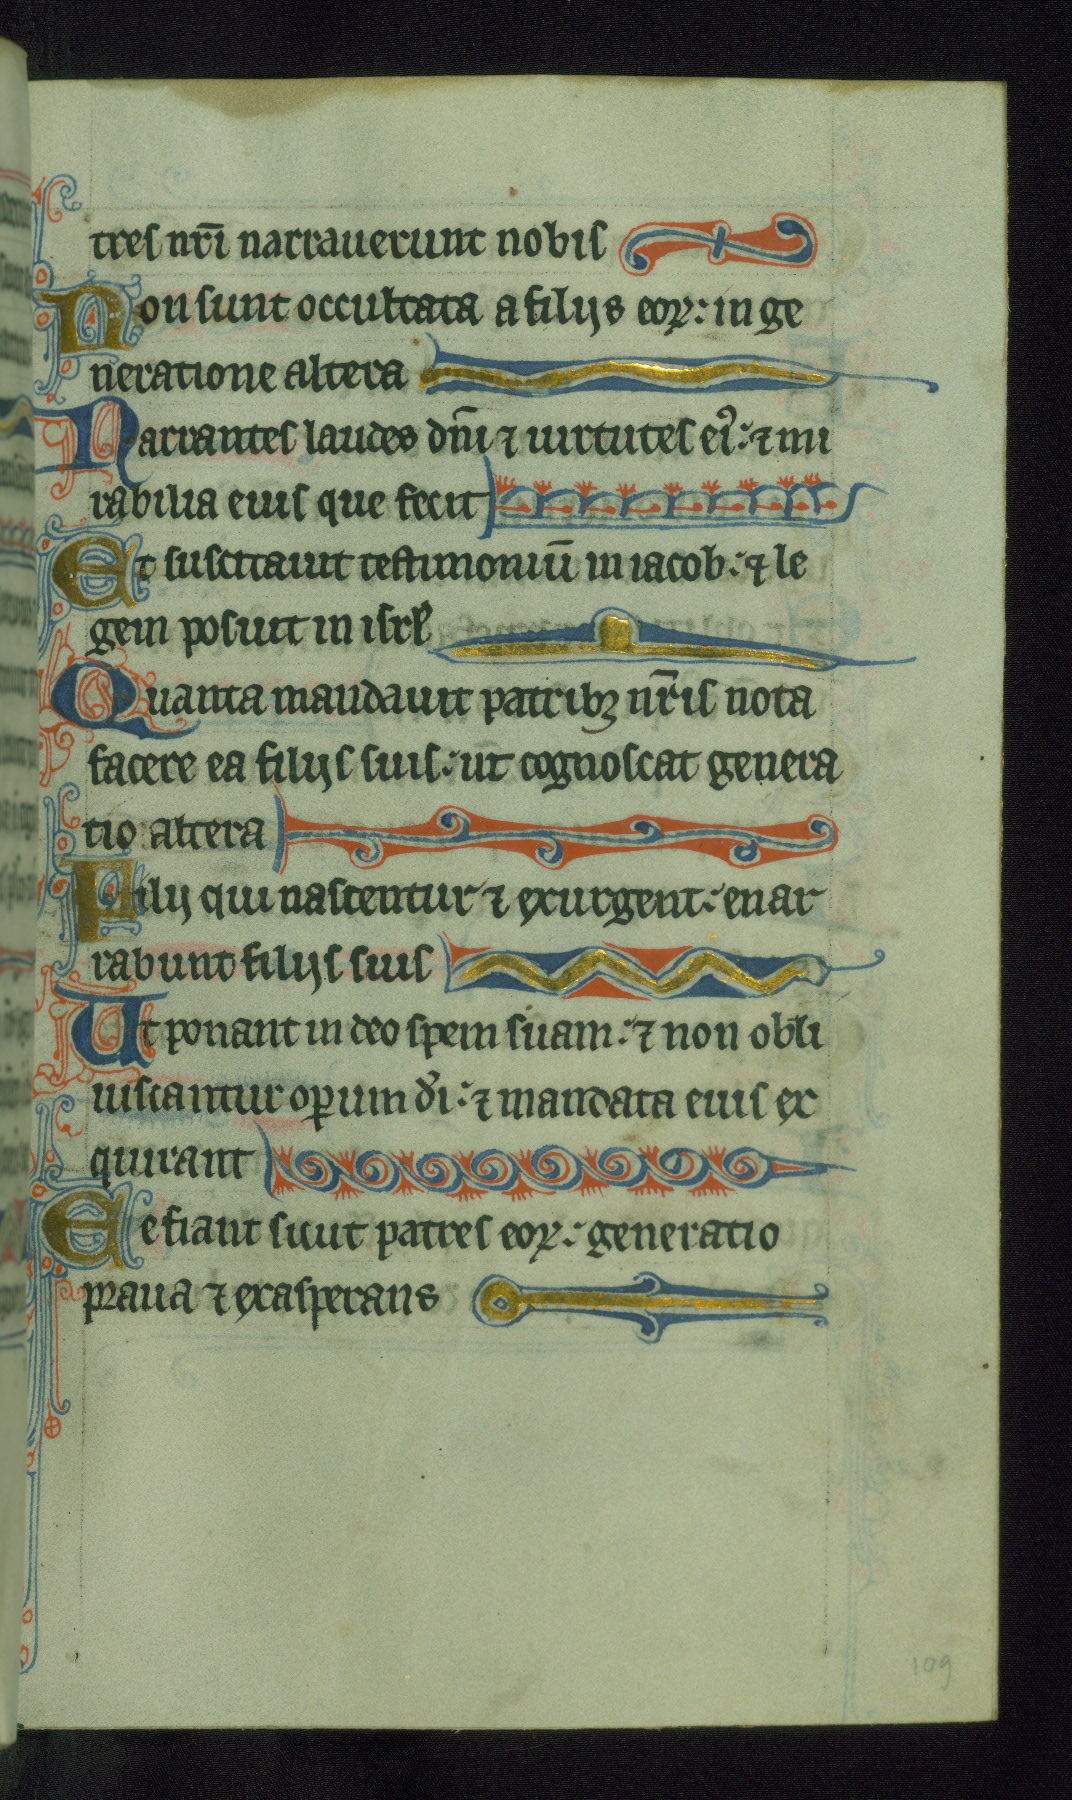 tres nr̄i narrauerunt nobis
Non sunt occultata a filijs eoꝝ: in ge
neratione altera
Narrantes laudes dn̄i ⁊ uirtutes eiꝰ: ⁊ mi
rabilia eius que fecit
Et suscitauit testimoniū in iacob: ⁊ le
gem posuit in isrl̄
Quanta mandauit patribꝫ nr̄is nota
facere ea filijs suis: ut cognoscat genera
tio altera
Filij qui nascentur ⁊ exurgent: enar
rabunt filijs suis
Ut ponant in deo spem suam: ⁊ non obli
uiscantur oꝑum d̄i: ⁊ mandata eius ex
quirant
Ee fiant sicut patres eoꝝ: generatio
praua ⁊ exasperans
109